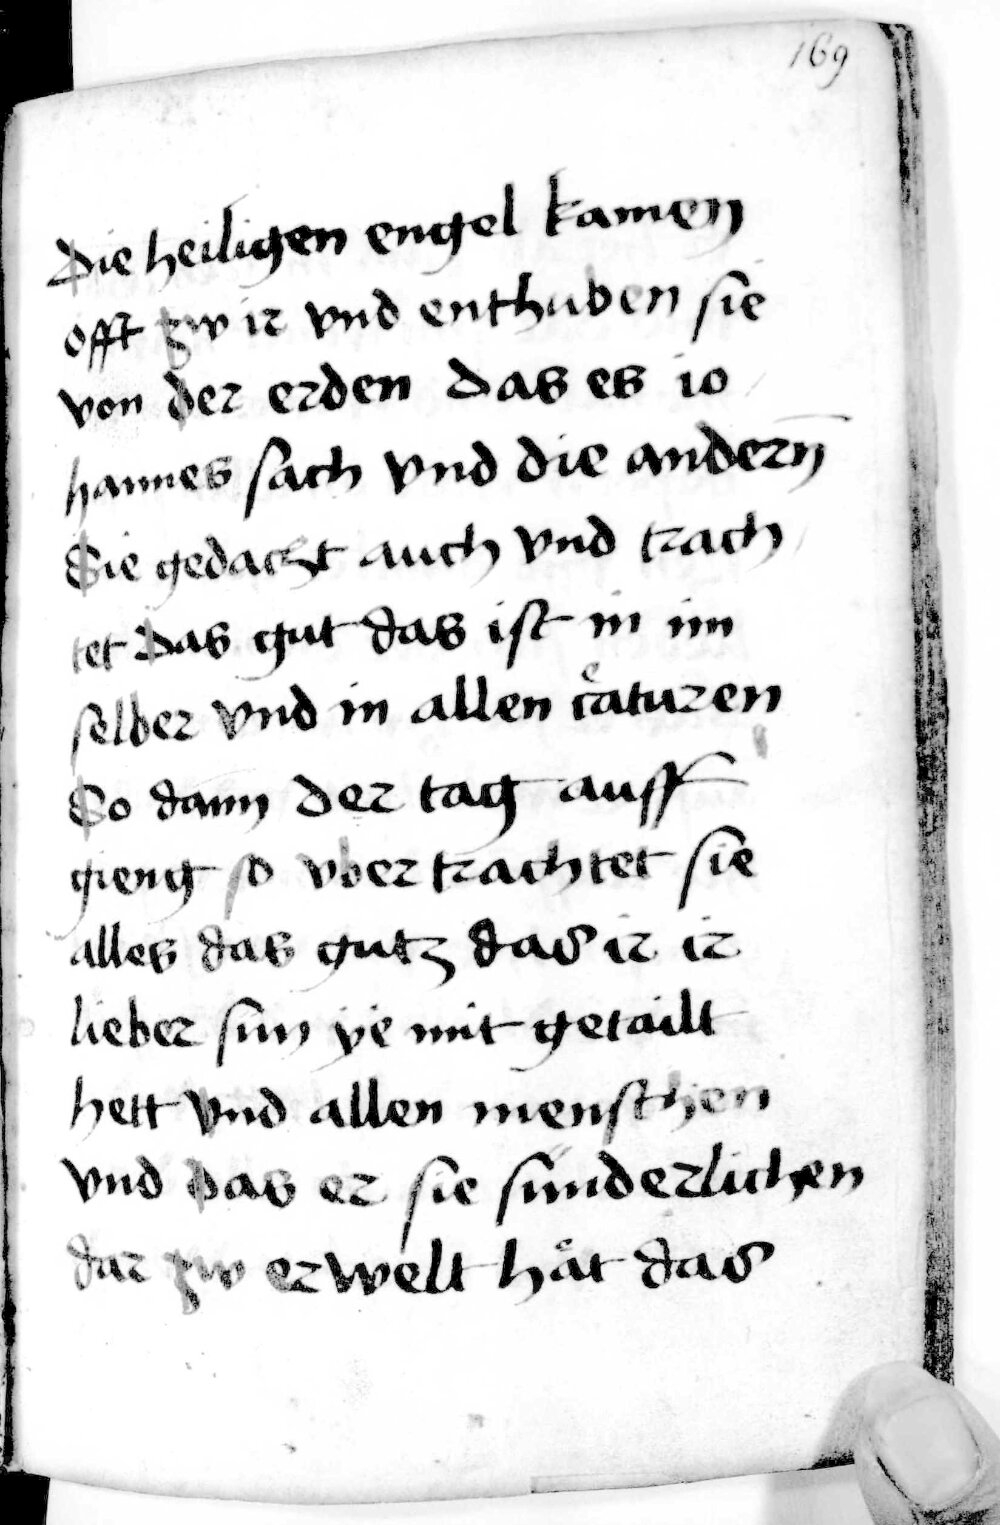 169
Die heiligen engel kamen
offt zw ir vnd enthuben sie
von der erden das es io
hannes sach vnd die andern̄
Sie gedacht auch vnd trach
tet das gut das ist in im
selber vnd in allen cͤaturen
So dann der tag auff
gieng so vber trachtet sie
alles das gutz das ir ir
lieber sun ye mit getailt
hett vnd allen menschen
vnd das er sie sünderlichen
dar zw erwelt haͤt das